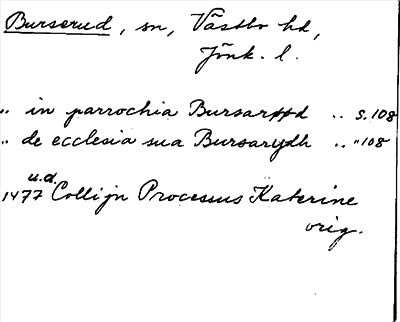 Burserud, sn, Västbo hd,
Jönk. l.
.. in parrochia Bursarydh .. s. 108
.. de ecclesia sua Bursarydh .. " 108
u.d.
1477 Collijn Processus Katerine
orig.